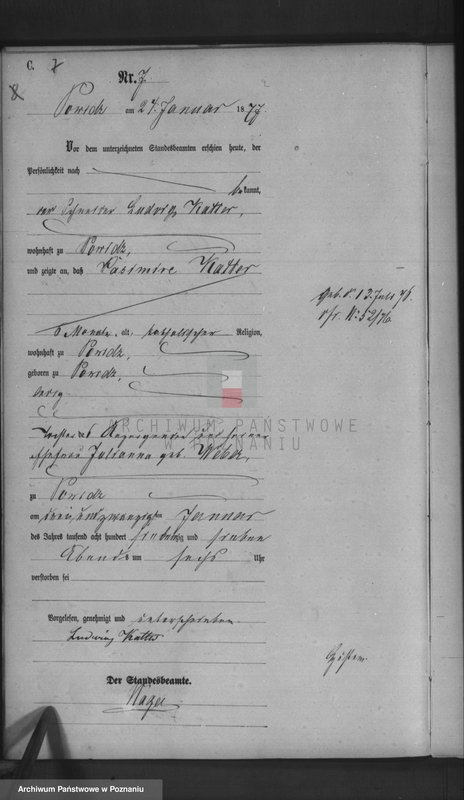 C.
7
8
Nr. 7.
Powidz am 24. Januar 1877.
Vor dem unterzeichneten Standesbeamten erschien heute, der
Persönlichkeit nach
bekannt,
der Schneider Ludwig Katter,
wohnhaft zu Powidz,
und zeigte an, daß Casimire Katter
6 Monate alt, katholischer Religion,
wohnhaft zu Powidz,
geboren zu Powidz,
ledig
Tochter des Anzeigenden und seiner
Ehefrau Julianna geb. Weber,
zu Powidz
am drei und zwanzigsten Januar
des Jahres tausend acht hundert siebenzig und sieben
Abends um sechs Uhr
verstorben sei
Vorgelesen, genehmigt und unterschrieben
Ludwig Katter
Der Standesbeamte.
Geb. d. 13. Juli 76.
Nr. 52/76
ARCHIWUM PAŃSTWOWE
W POZNANIU
Archiwum Państwowe w Poznaniu